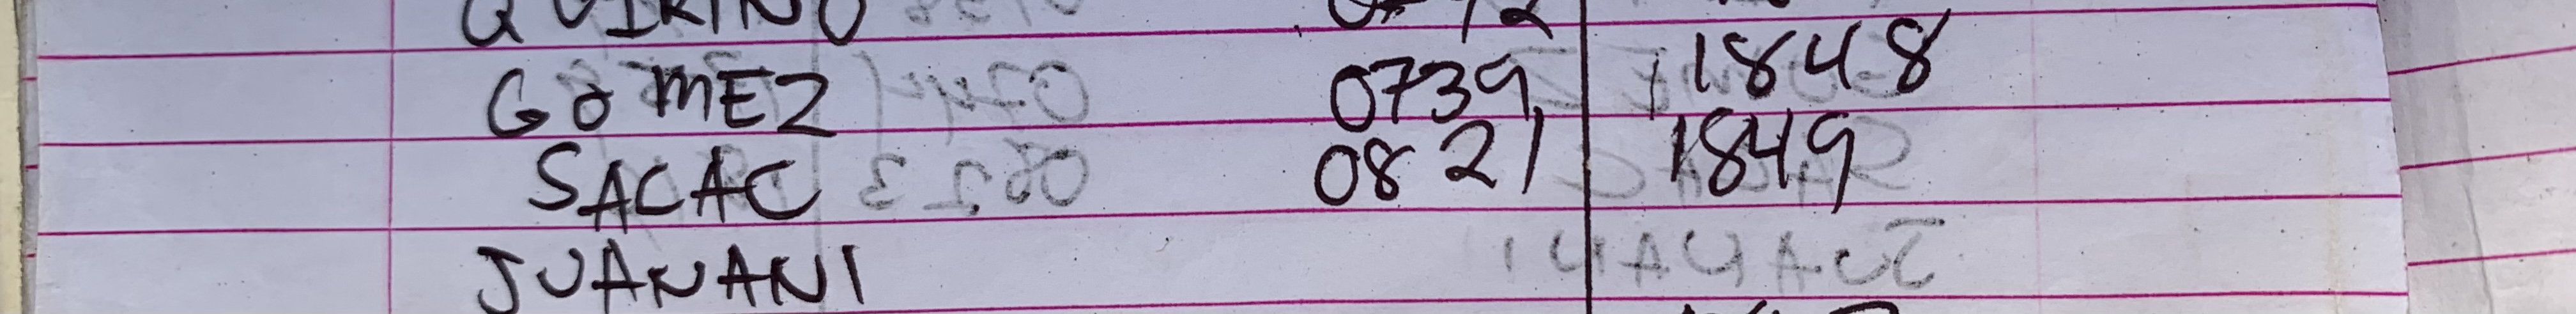 QUIRINO
GOMEZ 0739 1848
SACAC 0821 1849
JUANANI